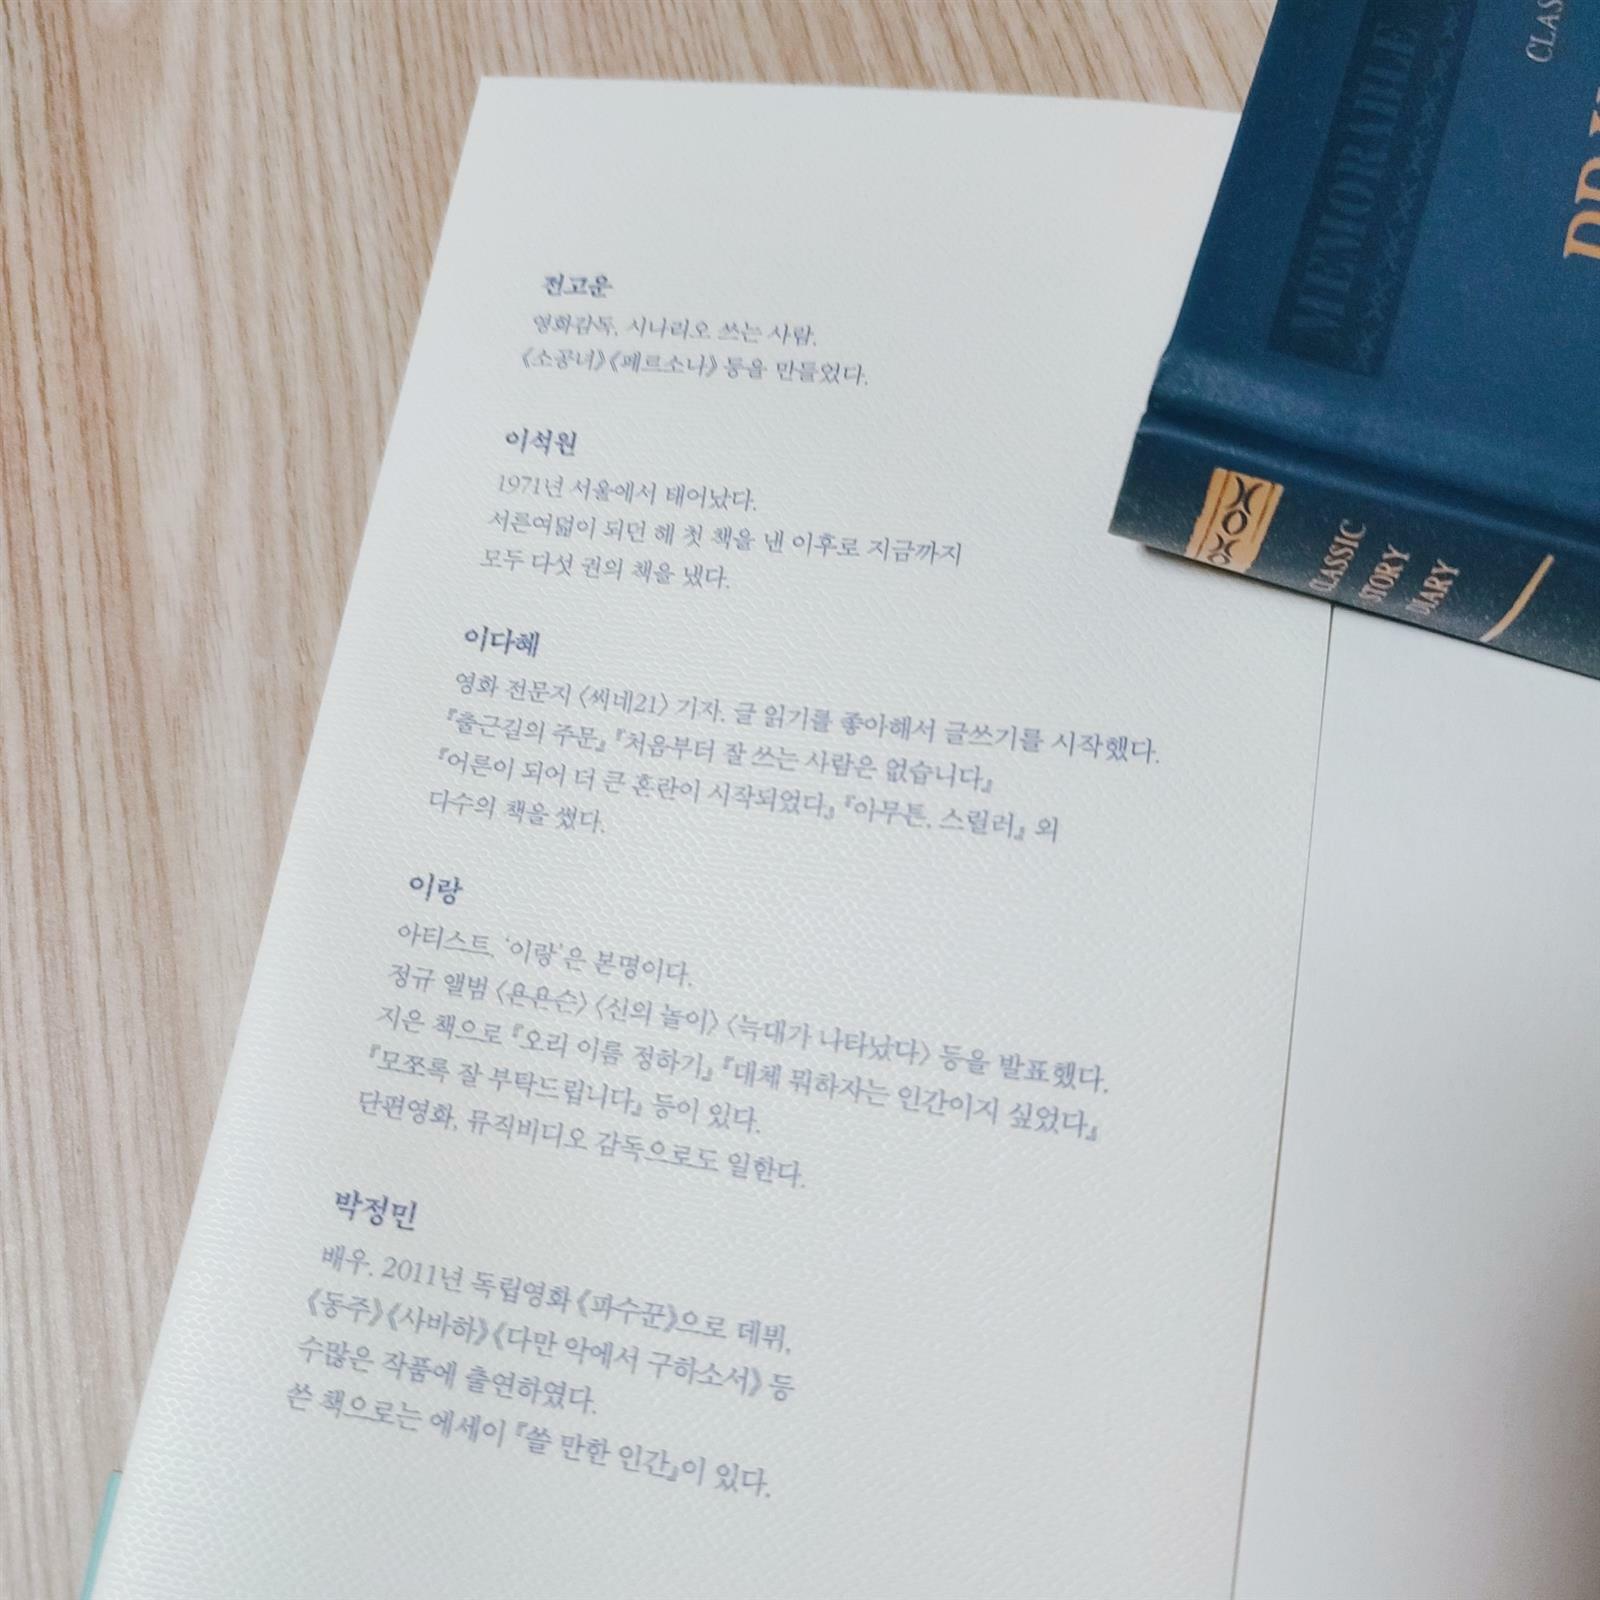 전고운
영화감독, 시나리오 쓰는 사람.
《소공녀》《페르소나》 등을 만들었다.
이석원
1971년 서울에서 태어났다.
서른여덟이 되던 해 첫 책을 낸 이후로 지금까지
모두 다섯 권의 책을 냈다.
이다혜
영화 전문지 〈씨네21〉 기자. 글 읽기를 좋아해서 글쓰기를 시작했다.
『출근길의 주문』 『처음부터 잘 쓰는 사람은 없습니다』
『어른이 되어 더 큰 혼란이 시작되었다』 『아무튼, 스릴러』 외
다수의 책을 썼다.
이랑
아티스트. ‘이랑’은 본명이다.
정규 앨범 〈욘욘슨〉 〈신의 놀이〉 〈늑대가 나타났다〉 등을 발표했다.
지은 책으로 『오리 이름 정하기』 『대체 뭐하자는 인간이지 싶었다』
『모쪼록 잘 부탁드립니다』 등이 있다.
단편영화, 뮤직비디오 감독으로도 일한다.
박정민
배우. 2011년 독립영화 《파수꾼》으로 데뷔,
《동주》 《사바하》 《다만 악에서 구하소서》 등
수많은 작품에 출연하였다.
쓴 책으로는 에세이 『쓸 만한 인간』이 있다.
MEMORABLE
CLASSIC
STORY
DIARY